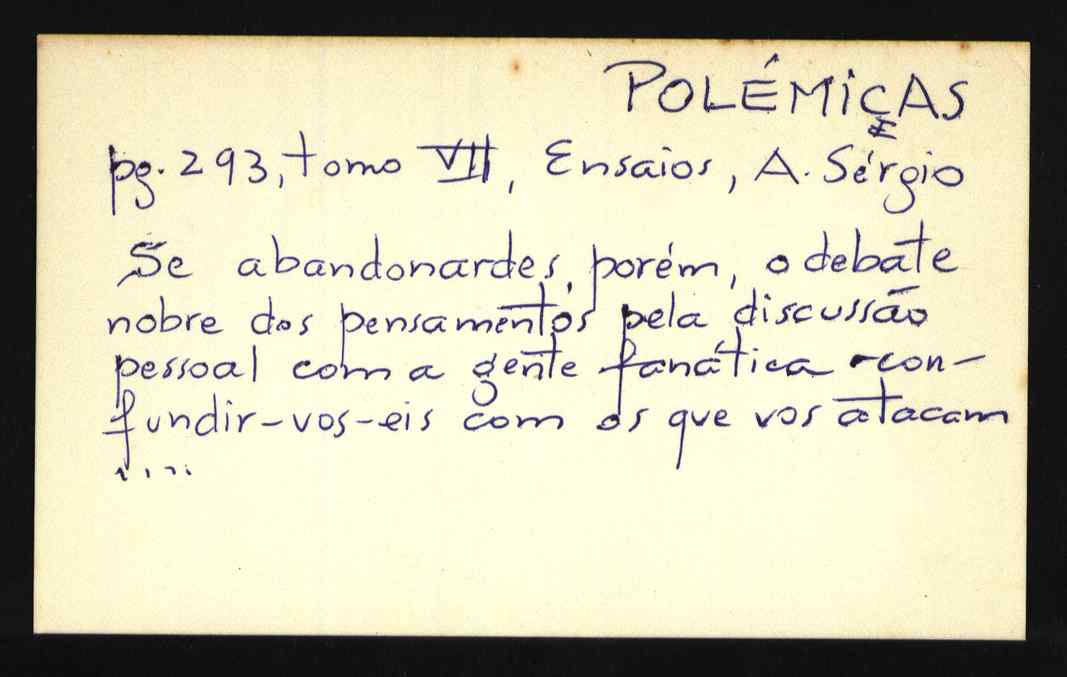 POLÉMICAS
pg. 293, tomo VII, Ensaios, A. Sérgio
Se abandonardes, porém, o debate
nobre dos pensamentos pela discussão
pessoal com a gente fanática - con-
fundir-vos-eis com os que vos atacam
....